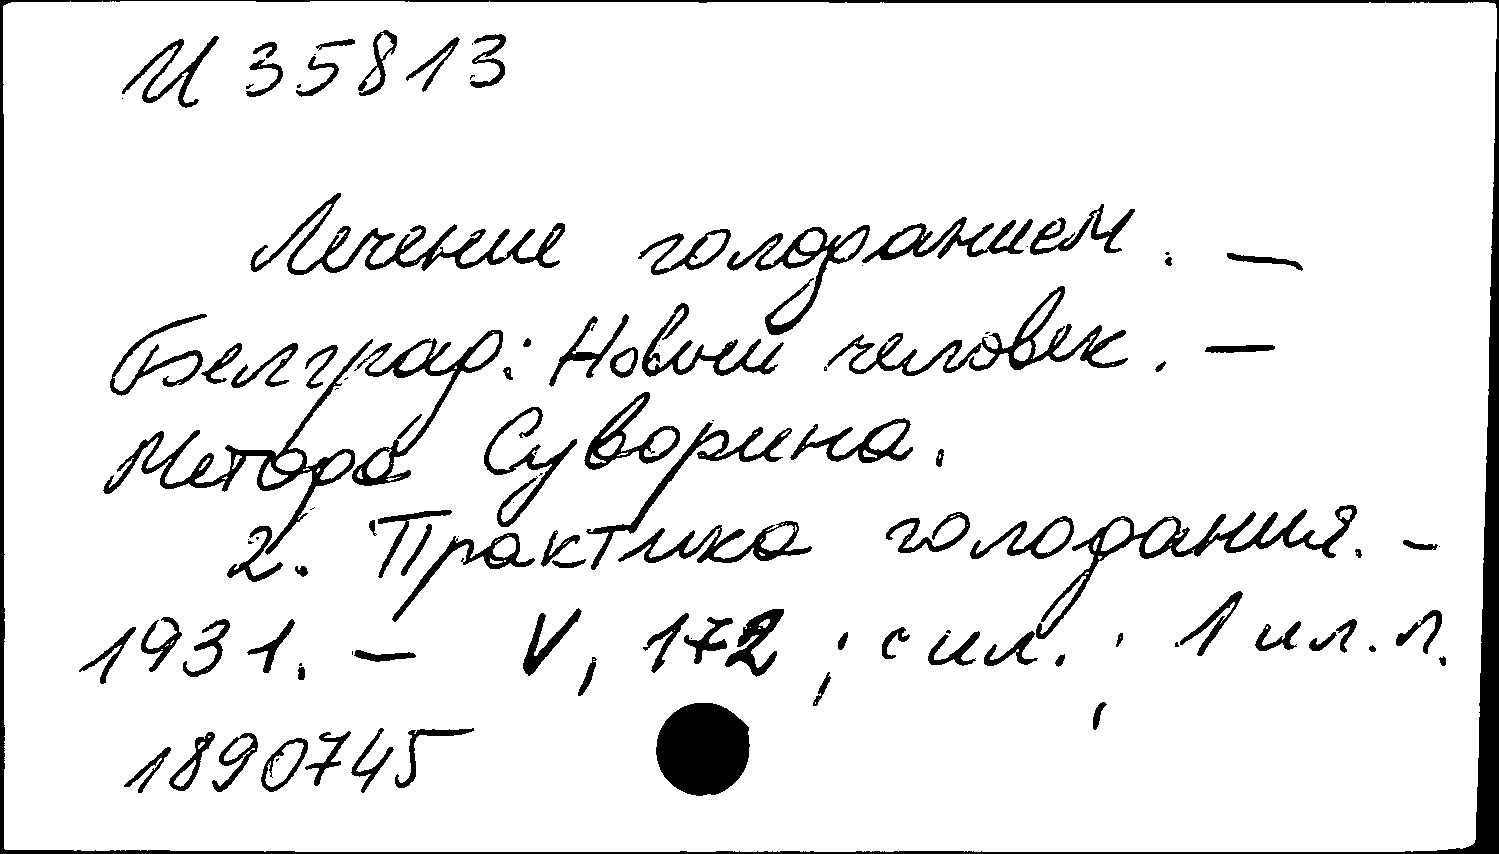 И 35813
Лечение голоданием. —
Белград: Новый человек. —
Метода Суворина.
2. Практика голодания. –
1931. — V, 172 ; с ил. ; 1 ил. л.
1890745